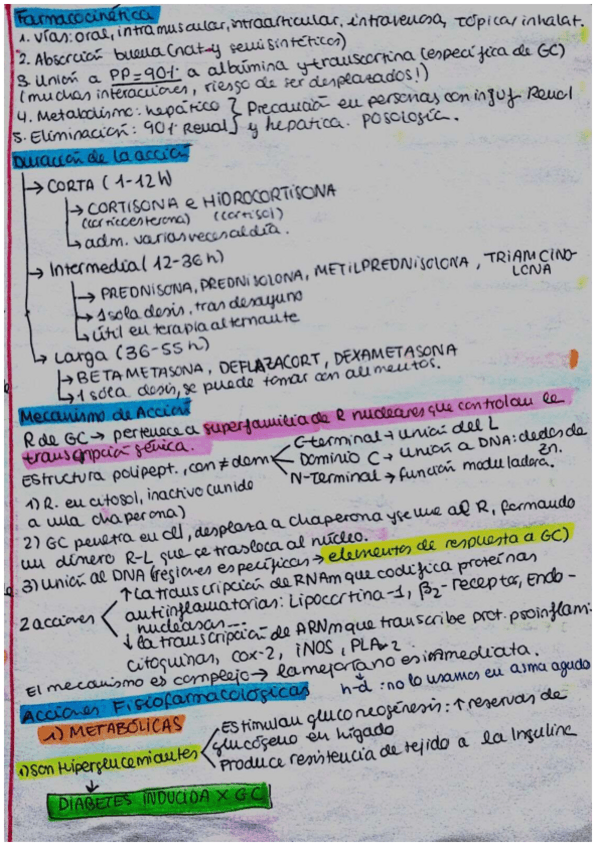 Farmacocinética
1. Vías: oral, intramuscular, intraarticular, intravenosa, tópica, inhalat.
2. Absorción buena (nat y semisintéticos)
3. Unión a PP = 90% a albúmina y transcortina (específica de GC)
(muchas interacciones, riesgo de ser desplazados!)
4. Metabolismo: hepático } Precaución en personas con insuf Renal
5. Eliminación: 90% Renal } y hepática. Posología.
Duración de la acción
→ CORTA (1-12h)
→ CORTISONA e HIDROCORTISONA
(corticoesterona) (cortisol)
→ adm. varias veces al día.
→ Intermedia (12-36h)
→ PREDNISONA, PREDNISOLONA, METILPREDNISOLONA, TRIAMCINO-
LONA
→ 1 sola dosis, tras desayuno
→ útil en terapia alternante
→ Larga (36-55h)
→ BETAMETASONA, DEFLAZACORT, DEXAMETASONA
→ 1 sola dosis, se puede tomar con alimentos.
Mecanismo de Acción
R de GC → pertenece a superfamilia de R nucleares que controlan la
transcripción génica.
Estructura polipept., con ≠ dom
C-terminal → unión del L
Dominio C → unión a DNA: dedos de
Zn.
N-Terminal → función moduladora.
1) R. en citosol, inactivo (unido
a una chaperona)
2) GC penetra en cél, desplaza a chaperona y se une al R, formando
un dímero R-L que se trasloca al núcleo.
3) Unión al DNA (regiones específicas → elementos de respuesta a GC)
2 acciones
↑ La transcripción de RNAm que codifica proteínas
antiinflamatorias: Lipocortina-1, β2-receptor, Endo-
nucleasas...
↓ la transcripción de ARNm que transcribe prot. proinflam:
citoquinas, cox-2, iNOS, PLA-2
El mecanismo es complejo → la mejora no es inmediata.
h-d: no lo usamos en asma agudo
Acciones Fisiofarmacológicas
1) METABÓLICAS
1) Son Hiperglucemiantes
Estimulan gluconeogénesis: ↑ reservas de
glucógeno en hígado
Produce resistencia de tejido a la Insulina
↓
DIABETES INDUCIDA X GC